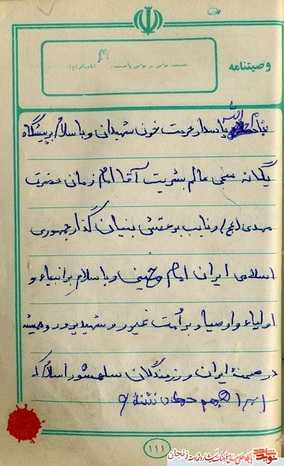 وصیتنامه
بنام الله پاسدار حرمت خون شهیدان و با سلام بر پیشگاه
یگانه منجی عالم بشریت آقا امام زمان حضرت
مهدی (عج) و نایب بر حقش بنیان گذار جمهوری
اسلامی ایران امام خمینی و با سلام بر انبیاء و
اولیاء و اوصیاء و بر امت غیور و شهید پرور و همیشه
در صحنه ایران و رزمندگان سلحشور اسلام که
۱۱۱
زنجان